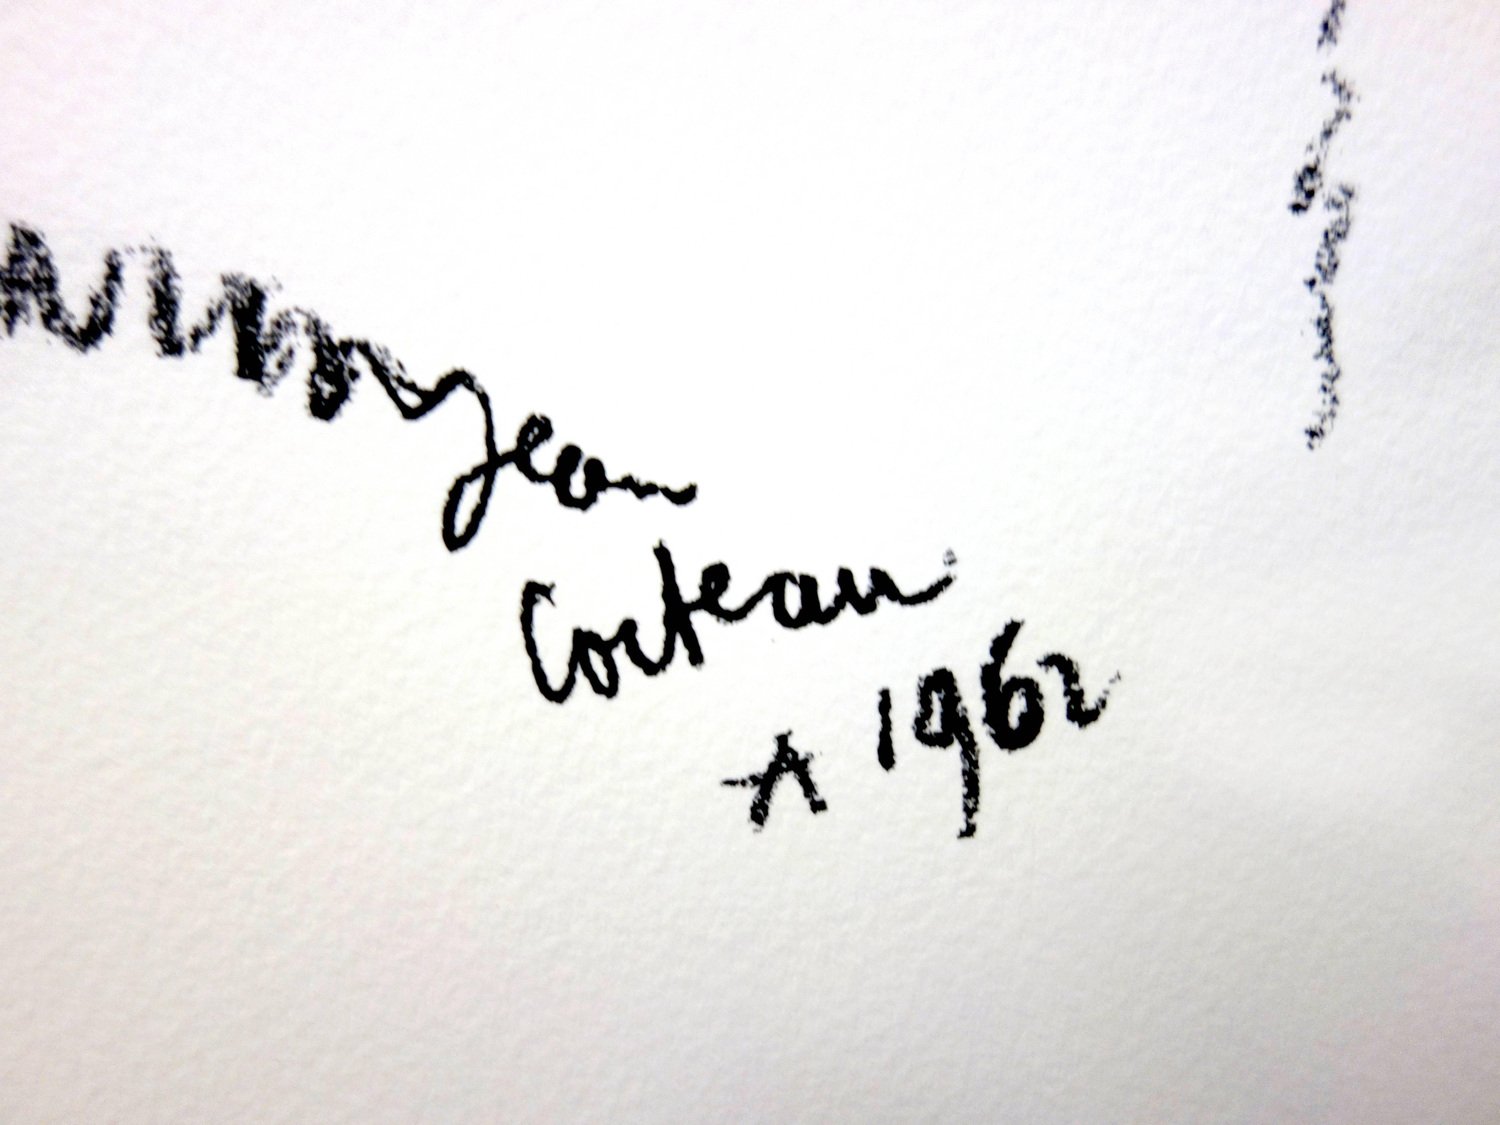 Jean
Cocteau
1962